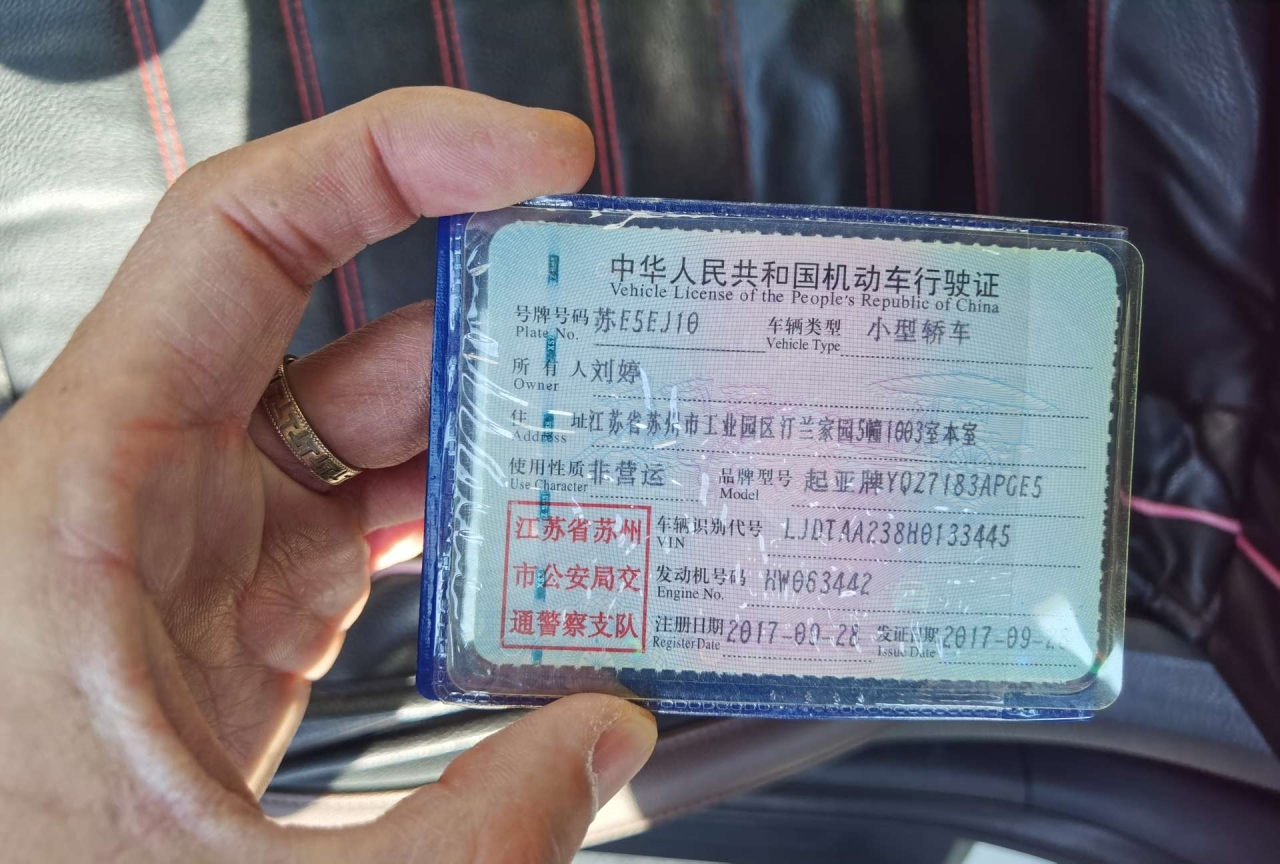 中华人民共和国机动车行驶证
Vehicle License of the People's Republic of China
号牌号码 苏E5EJ10 车辆类型 小型轿车
Plate No. Vehicle Type
所有人 刘婷
Owner
住址 江苏省苏州市工业园区汀兰家园5幢1603室本室
Address
使用性质 非营运 品牌型号 起亚牌YQZ7183APGE5
Use Character Model
江苏省苏州 车辆识别代号 LJDTAA238H0133445
VIN
市公安局交 发动机号码 HW063442
Engine No.
通警察支队 注册日期 2017-09-28 发证日期 2017-09-
Register Date Issue Date